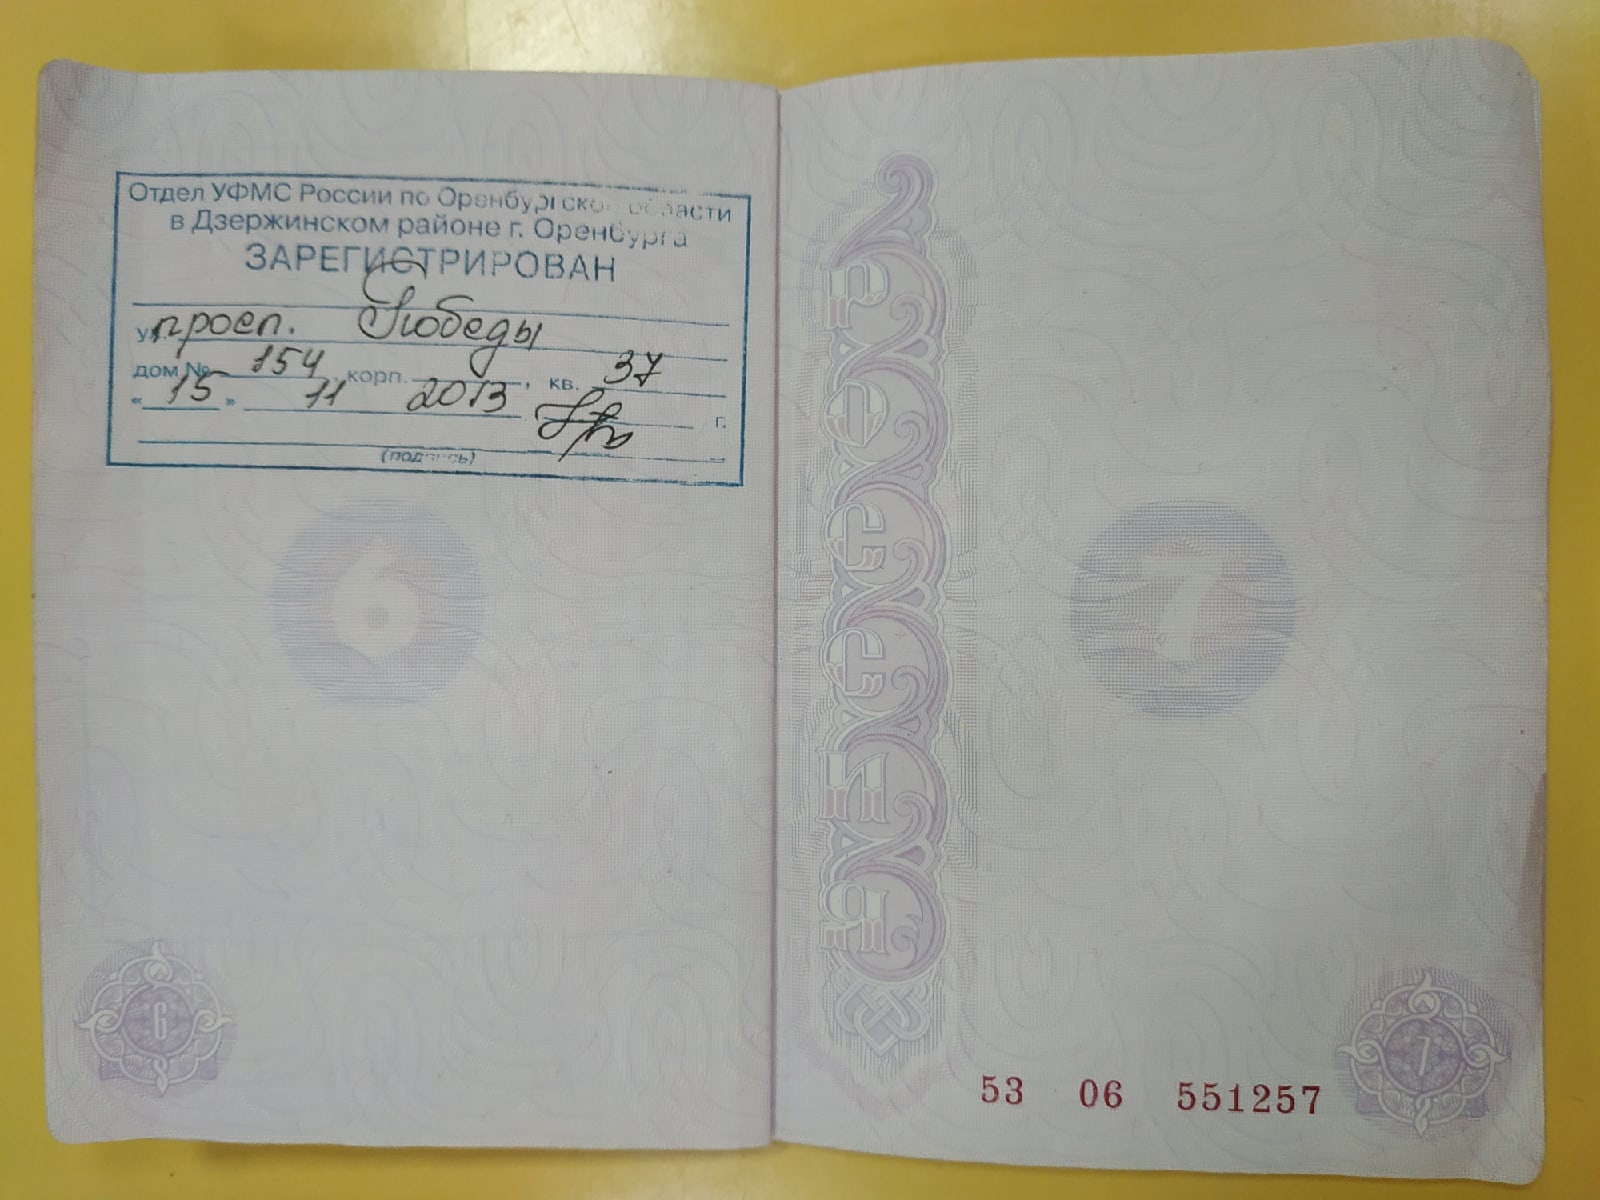 Отдел УФМС России по Оренбургской области
в Дзержинском районе г. Оренбурга
ЗАРЕГИСТРИРОВАН
ул. просп. Победы
дом № 154, корп. , кв. 37
« 15 » 11 2013 г.
(подпись)
6
6
РОССИЯ
7
7
53 06 551257